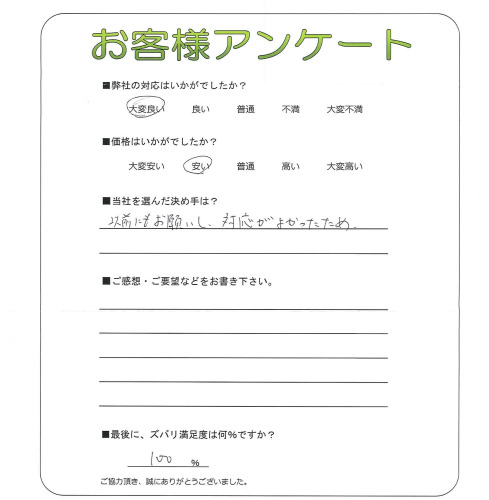 お客様アンケート
■弊社の対応はいかがでしたか？
大変良い 良い 普通 不満 大変不満
■価格はいかがでしたか？
大変安い 安い 普通 高い 大変高い
■当社を選んだ決め手は？
以前にもお願いし、対応がよかったため。
■ご感想・ご要望などをお書き下さい。
■最後に、ズバリ満足度は何%ですか？
100 %
ご協力頂き、誠にありがとうございました。